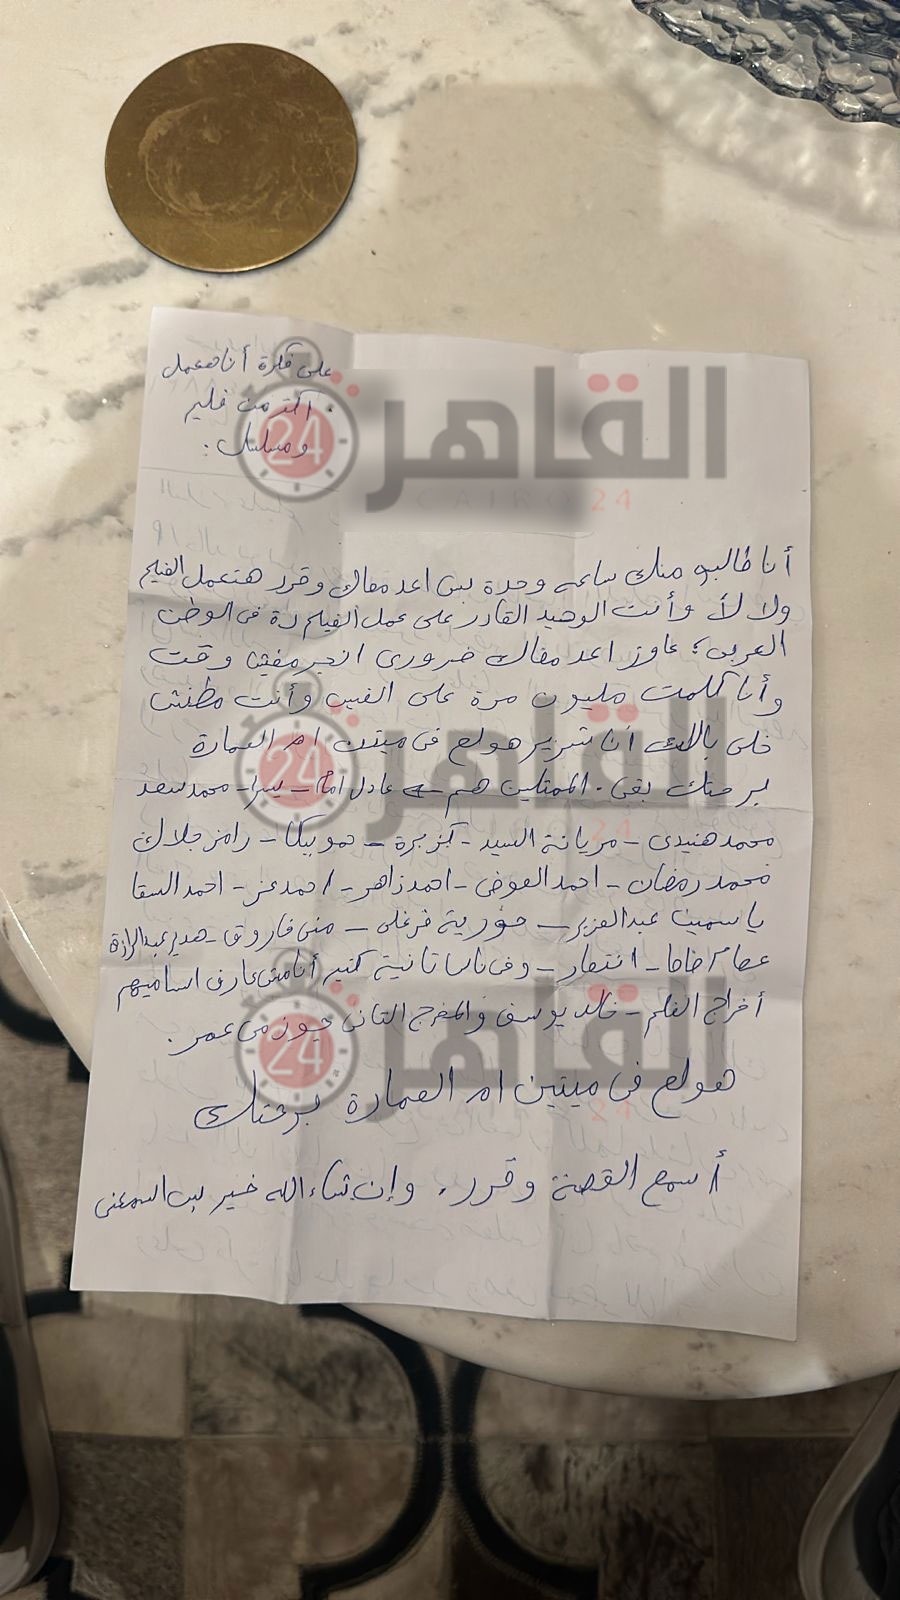 على فكرة أنا هعمل
أكتر من فليم
ومسلسل :
القاهرة 24
CAIRO 24
أنا طالبو منك ساعه وحدة بس اعد معاك وقرر هتعمل الفيلم
ولا لأ وأنت الوحيد القادر على عمل الفيلم دة فى الوطن
العربى؛ عاوز اعد معاك ضرورى انجز مفيش وقت
وأنا كلمت مليون مرة على الفيس وأنت مطنش
خلى بالك أنا شرير هولع فى ميتين ام العمارة
القاهرة 24
لبرحتك بقى . الممثلين هم عادل امام - يسرا - محمد سعد
محمد هنيدى - مريانة السيد - كزبرة - حمو بيكا - رامز جلال
محمد رمضان - احمد العوضى - احمد زاهر - احمد عز - احمد السقا
ياسمين عبد العزيز - حورية فرغلى - منى فاروق - هدير عبد الرازق
عصام - انتصار - وفى ناس تانية كتير أنا مش عارف اساميهم
أخراج الفلم - خالد يوسف والمخرج التانى يجوز من عمر .
القاهرة 24
هولع فى ميتين ام العمارة لبرحتك
أسمع القصة وقرر . وإن شاء الله خير بس اسمعنى